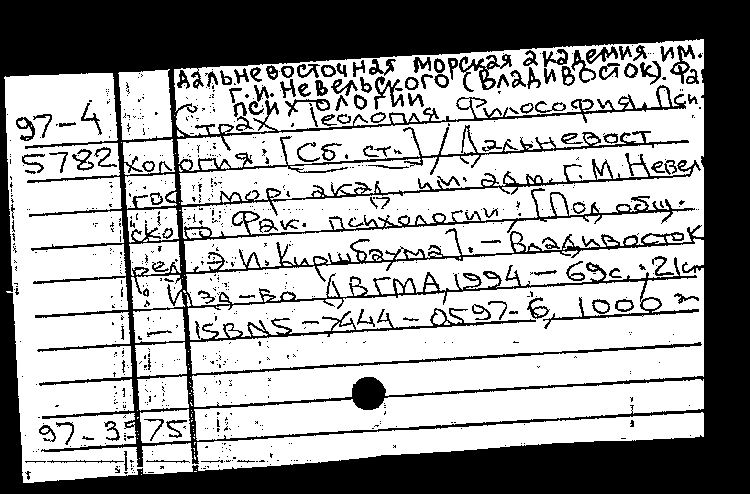 Дальневосточная морская академия им.
Г.И. Невельского (Владивосток). Фак
психологии
97-4 Страх. Теология, Философия, Пси-
5782 хология: [Сб. ст.] / Дальневост.
гос. мор. акад. им. адм. Г.И. Невель
ского. Фак. психологии; [Под общ.
ред. Э.И. Киршбаума]. – Владивосток
: Изд-во ДВГМА, 1994. – 69с.; 21см
. – ISBN5-7444-0597-6, 1000
97-3 75